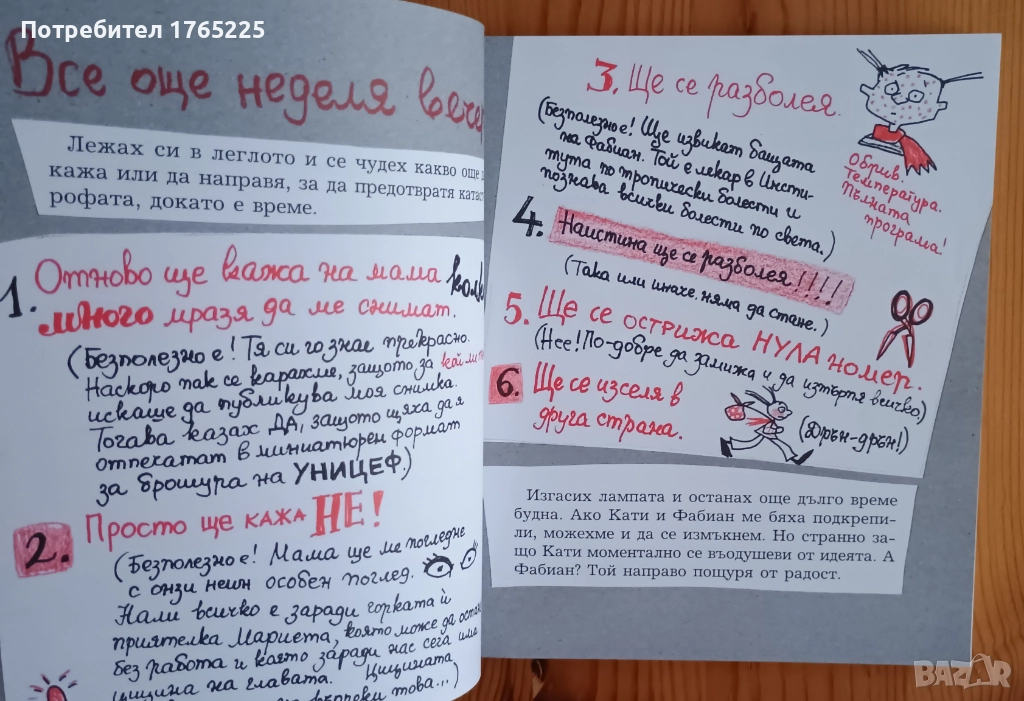 Потребител 1765225
Все още неделя вече
Лежах си в леглото и се чудех какво още
кажа или да направя, за да предотвратя катас
рофата, докато е време.
1. Отново ще кажа на мама колко
много мразя да ме снимат.
(Безполезно е! Тя си го знае прекрасно.
Наскоро пак се карахме, защото за
искаше да публикува моя снимка.
Тогава казах ДА, защото щяха да я
отпечатат в миниатюрен формат
за брошура на УНИЦЕФ.)
2. Просто ще кажа НЕ!
(Безполезно е! Мама ще ме погледне
с онзи неин особен поглед.
Нали всичко е заради горката ѝ
приятелка Мариета, която може да остане
без работа и която заради нас сега има
цицина на главата. Цицината
въпреки това...)
3. Ще се разболея.
(Безполезно е! Ще извикат бащата
на Фабиан. Той е лекар в Инсти-
тута по тропически болести и
познава всички болести по света.)
Обрив.
Температура.
Пълната
програма!
4. Наистина ще се разболея!!!!
(Така или иначе няма да стане.)
5. Ще се острижа НУЛА номер.
(Нее! По-добре да замижа и да изтърпя всичко.)
6. Ще се изселя в
друга страна.
(Дрън-дрън!)
Изгасих лампата и останах още дълго време
будна. Ако Кати и Фабиан ме бяха подкрепи-
ли, можехме и да се измъкнем. Но странно за-
що Кати моментално се въодушеви от идеята. А
Фабиан? Той направо пощуря от радост.
BAZAR